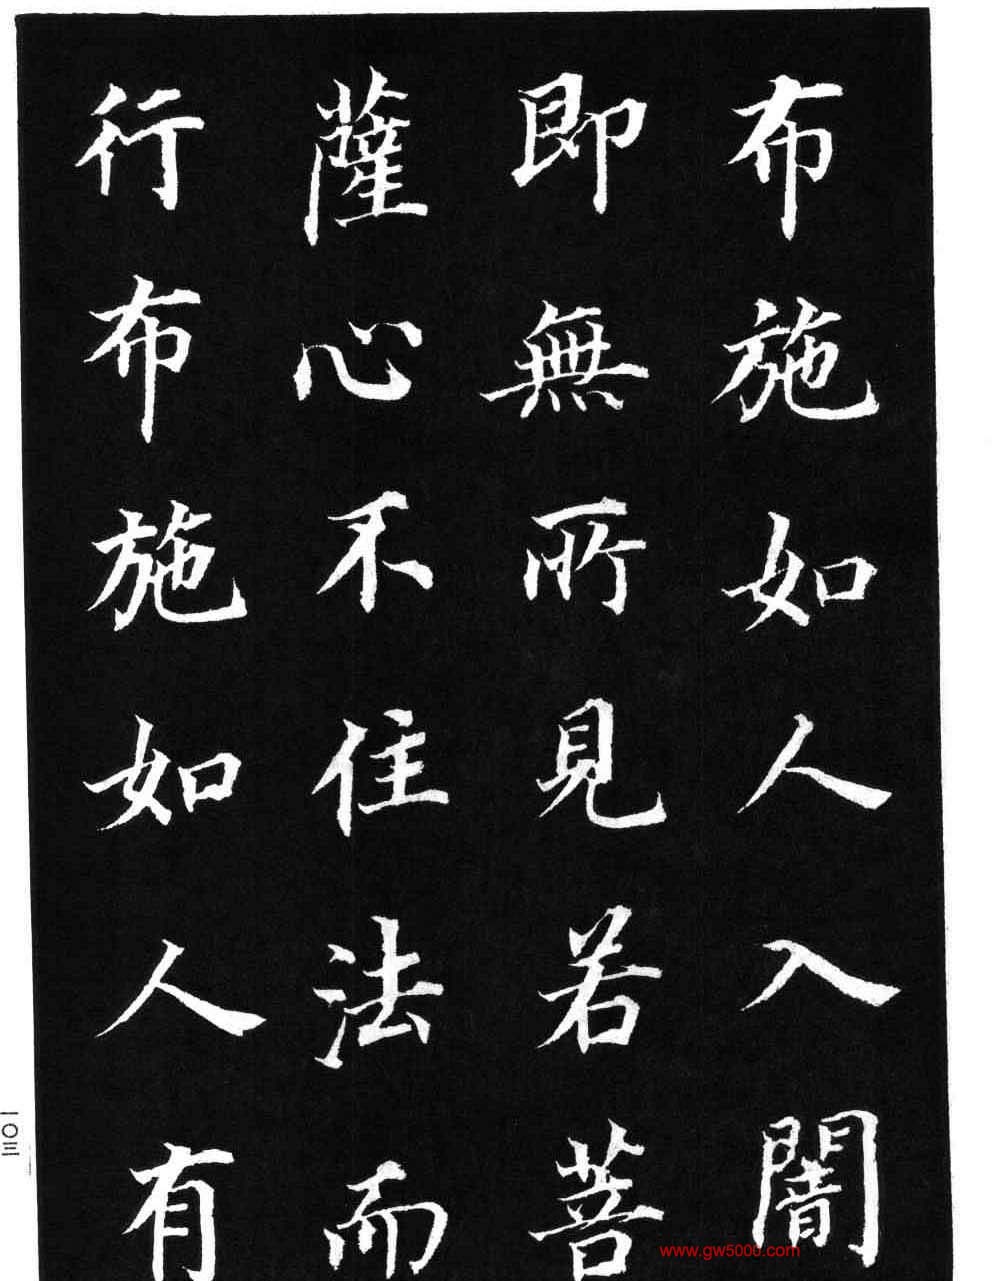 布施如人入闇
即無所見若菩
薩心不住法而
行布施如人有
一〇三
www.gw5000.com